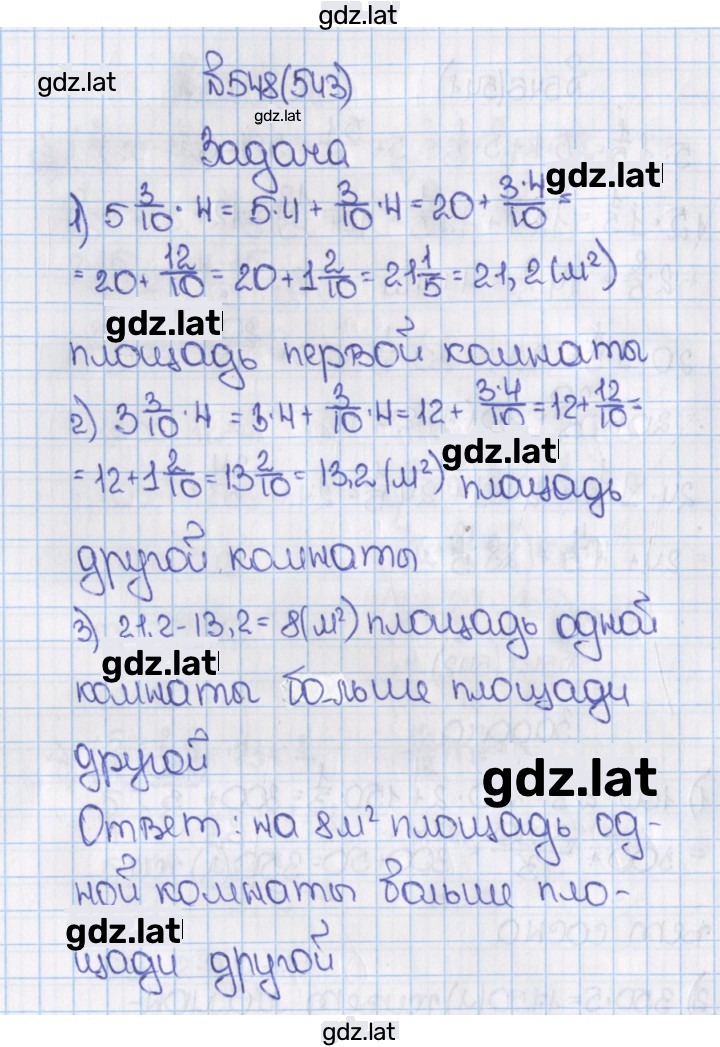 gdz.lat
gdz.lat
№548(543)
gdz.lat
Задача
gdz.lat
1) 5 3/10 · 4 = 5·4 + 3/10 · 4 = 20 + 3·4/10 =
= 20 + 12/10 = 20 + 1 2/10 = 21 1/5 = 21,2 (м²)
gdz.lat
площадь первой комнаты
2) 3 3/10 · 4 = 3·4 + 3/10 · 4 = 12 + 3·4/10 = 12 + 12/10 =
gdz.lat
= 12 + 1 2/10 = 13 2/10 = 13,2 (м²) площадь
другой комнаты
3) 21.2 - 13,2 = 8(м²) площадь одной
gdz.lat
комнаты больше площади
другой
gdz.lat
Ответ: на 8м² площадь од-
ной комнаты больше пло-
gdz.lat
щади другой
gdz.lat